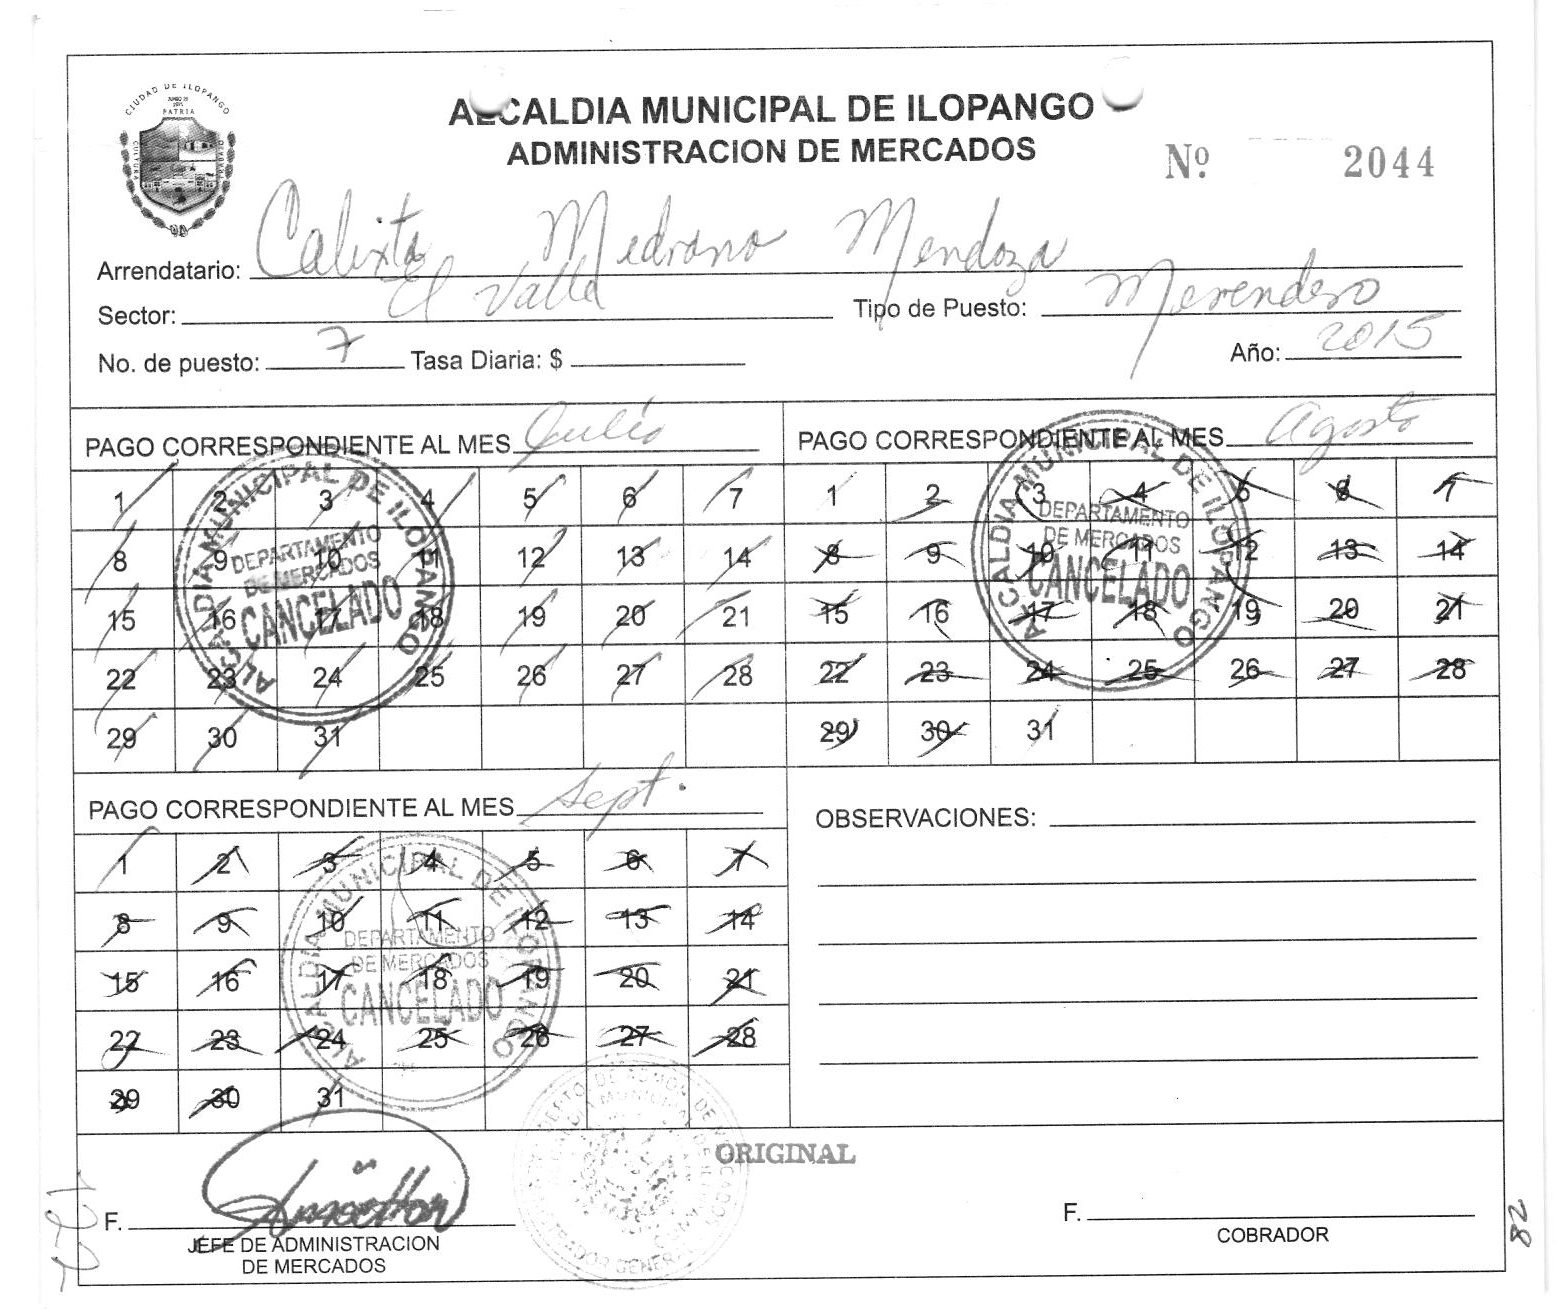 CIUDAD DE ILOPANGO
PATRIA
CULTURA
ALCALDIA MUNICIPAL DE ILOPANGO
ADMINISTRACION DE MERCADOS
Nº 2044
Arrendatario: Calixta Medrano Mendoza
Sector: El Valle Tipo de Puesto: Merendero
No. de puesto: 7 Tasa Diaria: $ Año: 2015
PAGO CORRESPONDIENTE AL MES Julio
1 2 3 4 5 6 7
8 9 10 11 12 13 14
15 16 17 18 19 20 21
22 23 24 25 26 27 28
29 30 31
ALCALDIA MUNICIPAL DE ILOPANGO
DEPARTAMENTO
DE MERCADOS
CANCELADO
PAGO CORRESPONDIENTE AL MES Agosto
1 2 3 4 5 6 7
8 9 10 11 12 13 14
15 16 17 18 19 20 21
22 23 24 25 26 27 28
29 30 31
ALCALDIA MUNICIPAL DE ILOPANGO
DEPARTAMENTO
DE MERCADOS
CANCELADO
PAGO CORRESPONDIENTE AL MES Sept.
1 2 3 4 5 6 7
8 9 10 11 12 13 14
15 16 17 18 19 20 21
22 23 24 25 26 27 28
29 30 31
ALCALDIA MUNICIPAL DE ILOPANGO
DEPARTAMENTO
DE MERCADOS
CANCELADO
OBSERVACIONES:
ORIGINAL
F.
JEFE DE ADMINISTRACION
DE MERCADOS
F.
COBRADOR
82